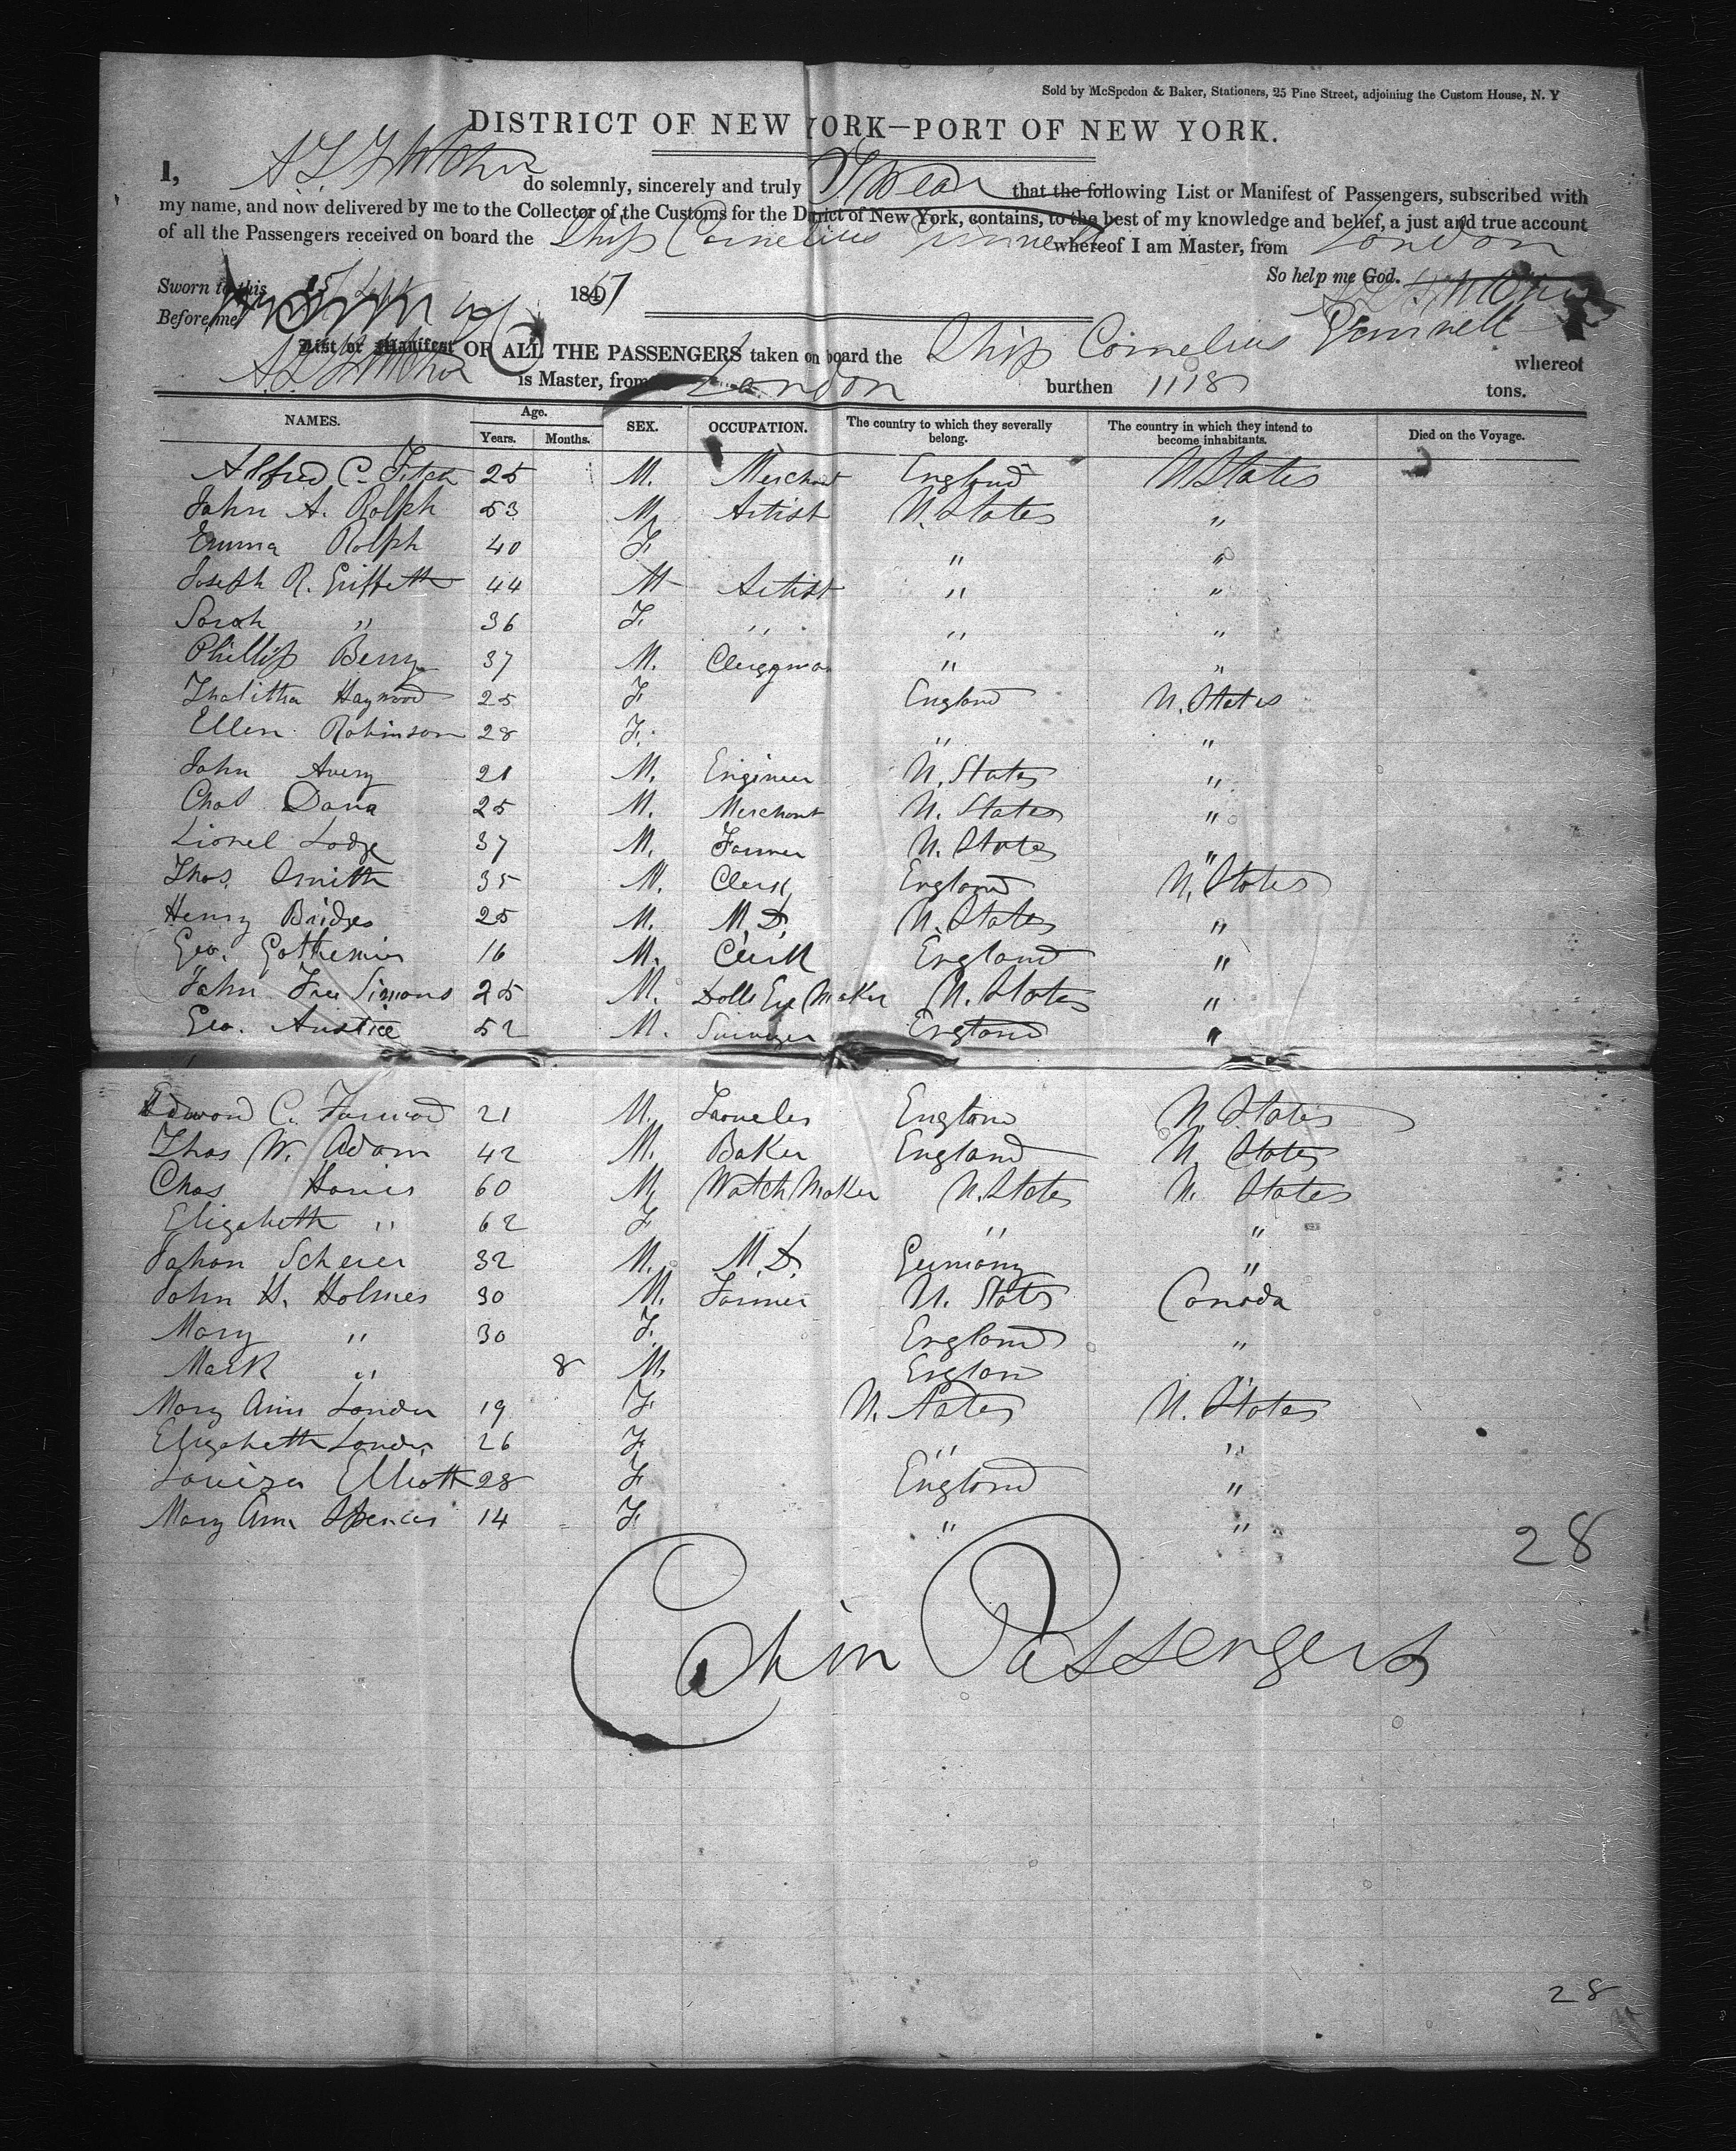 Sold by McSpedon & Baker, Stationers, 25 Pine Street, adjoining the Custom House, N. Y
DISTRICT OF NEW YORK—PORT OF NEW YORK.
I, do solemnly, sincerely and truly Swear that the following List or Manifest of Passengers, subscribed with
my name, and now delivered by me to the Collector of the Customs for the District of New York, contains, to the best of my knowledge and belief, a just and true account
of all the Passengers received on board the Ship Cornelius Grinnell whereof I am Master, from London
So help me God.
Sworn to this 1847
Before me
List or Manifest OF ALL THE PASSENGERS taken on board the Ship Cornelius Grinnell whereof
is Master, from London burthen 1118 tons.
NAMES. Age. Years. Months. SEX. OCCUPATION. The country to which they severally belong. The country in which they intend to become inhabitants. Died on the Voyage.
Alfred C. Fitch 25 M. Merchant England U States
John A. Rolph 53 M. Artist U. States "
Emma Rolph 40 F. " "
Joseph R. Griffeth 44 M Artist " "
Sarah " 36 F. " " "
Phillip Berry 37 M. Clergyman " "
Thalitha Haywood 25 F England U. States
Ellen Robinson 28 F. " "
John Avery 21 M. Engineer U. States "
Chas Dana 25 M. Merchant U. States "
Lionel Lodge 37 M. Farmer U. States "
Thos. Smith 35 M. Clerk England U. States
Henry Bridges 25 M. M.D. U. States "
Geo. 16 M. Clerk England "
John Free Simons 25 M. Dolls Eye Maker U. States "
Geo. Anstice 52 M. Surveyor England "
Edward C. 21 M. England U. States
Thos W. Adam 42 M. Baker England U. States
Chas Harris 60 M. Watch Maker U. States U. States
Elizabeth " 62 F " "
Scherer 32 M. M.D. Germany "
John H. Holmes 30 M. Farmer U. States Canada
Mary " 30 F. England "
Mark " 8 M. England "
Mary Ann Lander 19 F U. States U. States
Elizabeth Lander 26 F " "
Louiza Elliott 28 F England "
Mary Ann Spencer 14 F " "
28
Cabin Passengers
28